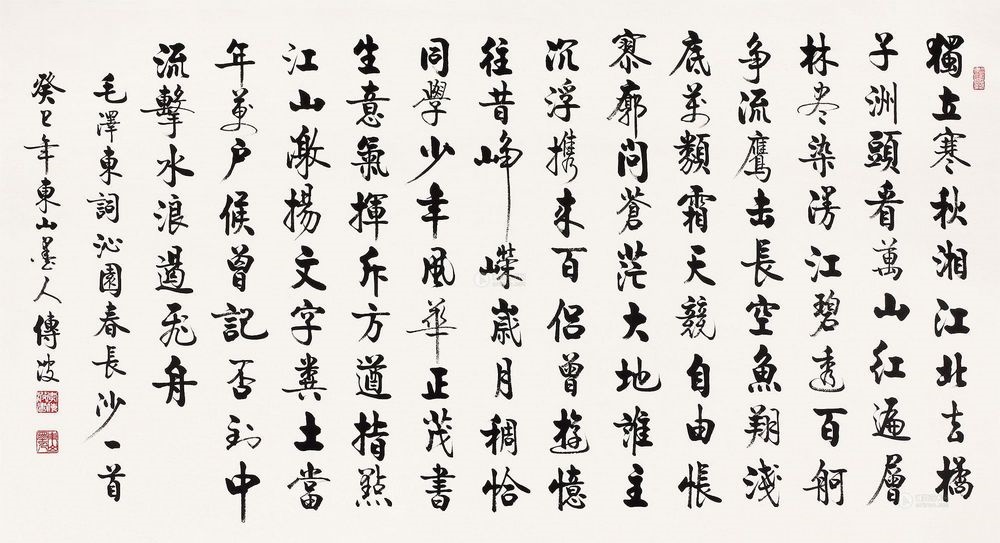 獨立寒秋湘江北去橘
子洲頭看萬山红遍層
林尽染漫江碧透百舸
争流鹰击長空魚翔淺
底萬類霜天競自由悵
寥廓问蒼茫大地誰主
沉浮携来百侣曾遊憶
往昔峥嶸歲月稠恰
同學少年風華正茂書
生意氣揮斥方遒指點
江山激揚文字糞土當
年萬户侯曾記否到中
流擊水浪遏飛舟
毛澤東詞沁園春長沙一首
癸巳年東山墨人傳波